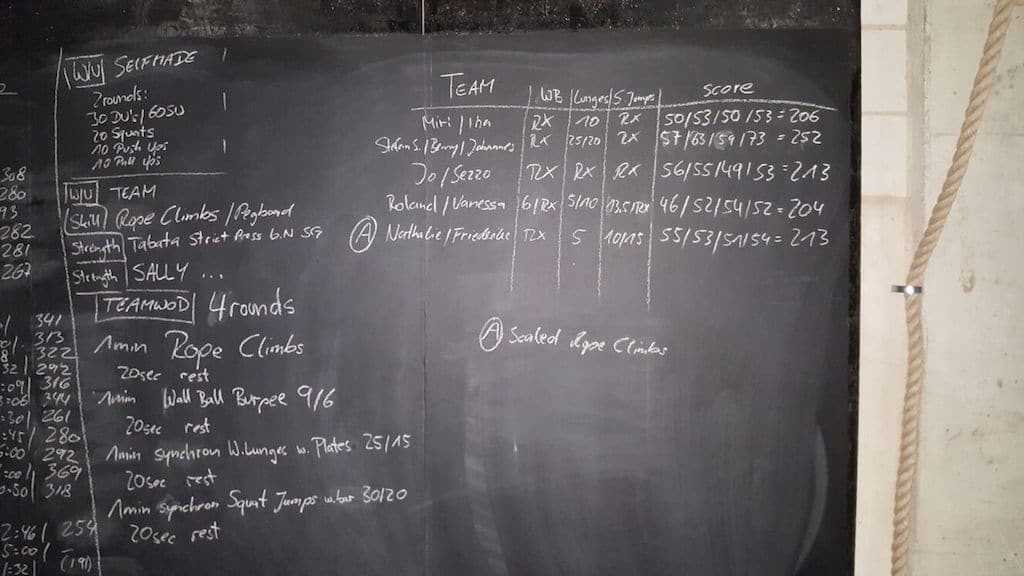 WU SELFMADE
2 rounds:
30 DU's / 60SU
20 Squats
10 Push Ups
10 Pull Ups
WU TEAM
Skill Rope Climbs / Pegboard
Strength Tabata Strict Press
Strength SALLY ...
TEAMWOD 4 rounds
1min Rope Climbs
20sec rest
1min Wall Ball Burpee 9/6
20sec rest
1min synchron W.Lunges w. Plates 25/15
20sec rest
1min synchron Squat Jumps w.bar 30/20
20sec rest
TEAM WB Lunges S Jumps score
Miri / Ina RX 10 RX 50/53/50/53 = 206
Stefan S. / Benny / Johannes RX 25/20 RX 57/63/59/73 = 252
Jo / Sezzo RX RX RX 56/55/49/53 = 213
Roland / Vanessa 6/RX 5/10 13,5/RX 46/52/54/52 = 204
A Nathalie / Friederike RX 5 10/15 55/53/51/54 = 213
A Scaled Rope Climbs
308
280
93
282
281
267
341
313
322
292
316
261
280
292
369
318
2:46 / 254
5:00 /
(191)